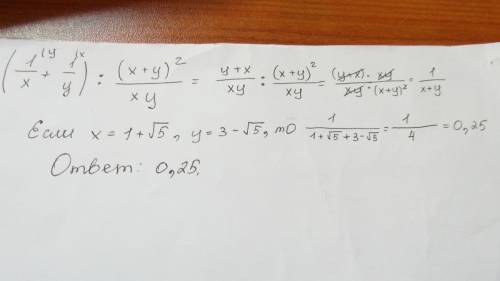 (1/x + 1/y) : (x+y)²/xy = y+x/xy : (x+y)²/xy = (y+x) · xy/xy · (x+y)² = 1/x+y
Если x = 1+√5, y = 3-√5, то 1/1+√5+3-√5 = 1/4 = 0,25
Ответ: 0,25.